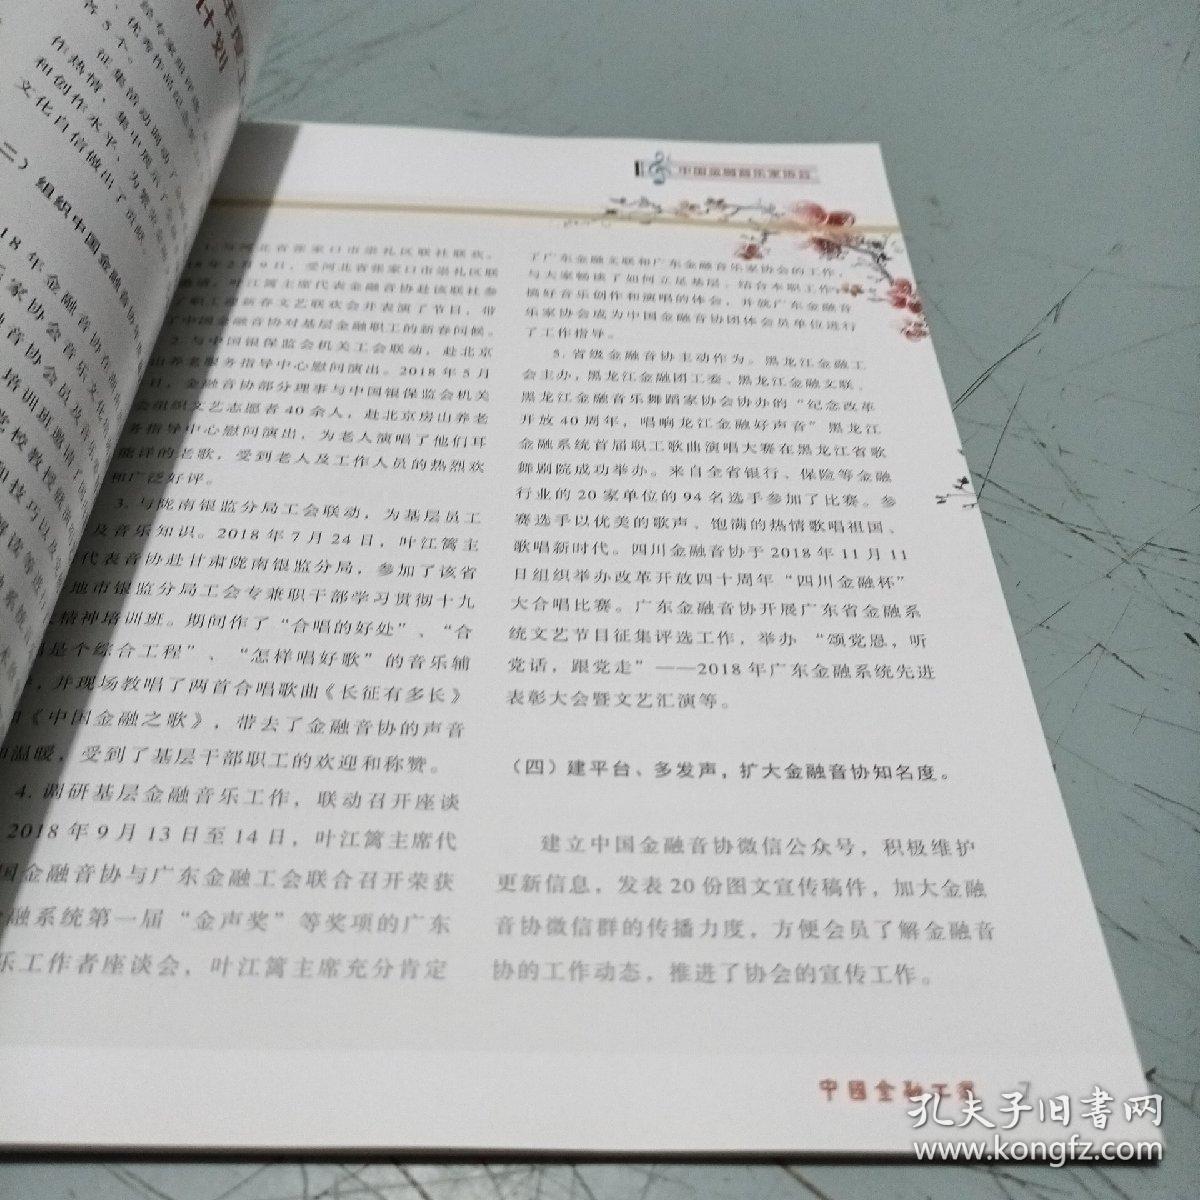 中国金融音乐家协会
作热情，集中展示了金融
和创作水平，为繁荣金融
文化自信做出了贡献。
二）组织中国金融音协
1. 与河北省张家口市崇礼区联社联欢。
18年2月9日，受河北省张家口市崇礼区联
邀请，叶江篱主席代表金融音协赴该联社参
了职工迎新春文艺联欢会并表演了节目，带
了中国金融音协对基层金融职工的新春问候。
2. 与中国银保监会机关工会联动，赴北京
山养老服务指导中心慰问演出。2018年5月
日，金融音协部分理事与中国银保监会机关
会组织文艺志愿者40余人，赴北京房山养老
务指导中心慰问演出，为老人演唱了他们耳
能详的老歌，受到老人及工作人员的热烈欢
和广泛好评。
3. 与陇南银监分局工会联动，为基层员工
及音乐知识。2018年7月24日，叶江篱主
代表音协赴甘肃陇南银监分局，参加了该省
地市银监分局工会专兼职干部学习贯彻十九
精神培训班。期间作了“合唱的好处”、“合
唱是个综合工程”、“怎样唱好歌”的音乐辅
，并现场教唱了两首合唱歌曲《长征有多长》
和《中国金融之歌》，带去了金融音协的声音
和温暖，受到了基层干部职工的欢迎和称赞。
4. 调研基层金融音乐工作，联动召开座谈
2018年9月13日至14日，叶江篱主席代
国金融音协与广东金融工会联合召开荣获
金融系统第一届“金声奖”等奖项的广东
乐工作者座谈会，叶江篱主席充分肯定
了广东金融文联和广东金融音乐家协会的工作，
与大家畅谈了如何立足基层、结合本职工作，
搞好音乐创作和演唱的体会，并就广东金融音
乐家协会成为中国金融音协团体会员单位进行
了工作指导。
5. 省级金融音协主动作为。黑龙江金融工
会主办，黑龙江金融团工委、黑龙江金融文联、
黑龙江金融音乐舞蹈家协会协办的“纪念改革
开放40周年，唱响龙江金融好声音”黑龙江
金融系统首届职工歌曲演唱大赛在黑龙江省歌
舞剧院成功举办。来自全省银行、保险等金融
行业的20家单位的94名选手参加了比赛。参
赛选手以优美的歌声、饱满的热情歌唱祖国、
歌唱新时代。四川金融音协于2018年11月11
日组织举办改革开放四十周年“四川金融杯”
大合唱比赛。广东金融音协开展广东省金融系
统文艺节目征集评选工作，举办“颂党恩，听
党话，跟党走”——2018年广东金融系统先进
表彰大会暨文艺汇演等。
（四）建平台、多发声，扩大金融音协知名度。
建立中国金融音协微信公众号，积极维护
更新信息，发表20份图文宣传稿件，加大金融
音协微信群的传播力度，方便会员了解金融音
协的工作动态，推进了协会的宣传工作。
中國金融工会 7
孔夫子旧书网
www.kongfz.com